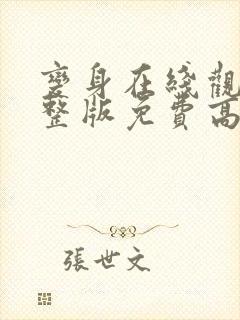 變身在綫觀
整版免費高
張世文